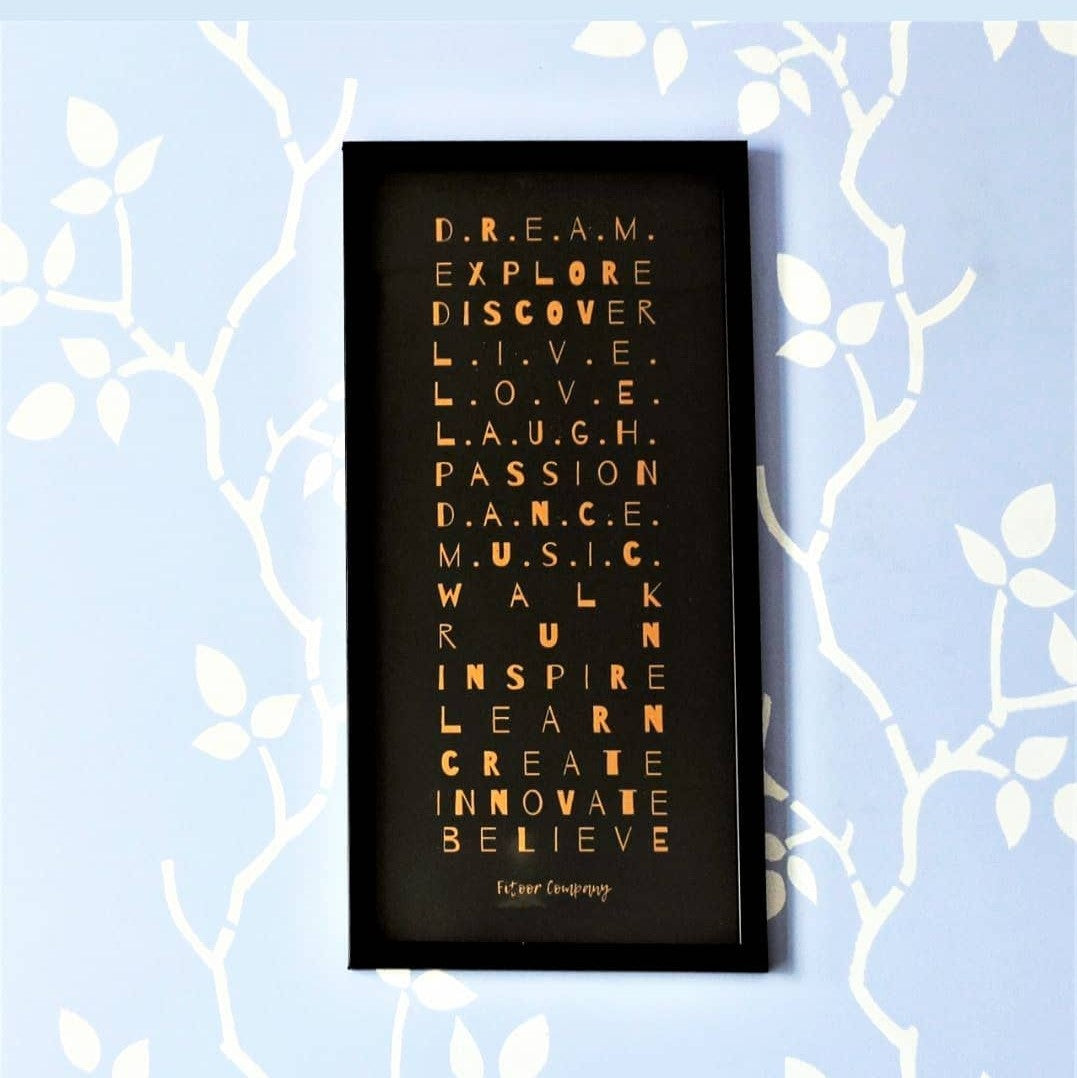 D.R.E.A.M.
EXPLORE
DISCOVER
L.I.V.E.
L.O.V.E.
L.A.U.G.H.
PASSION
D.A.N.C.E.
M.U.S.I.C.
WALK
RUN
INSPIRE
LEARN
CREATE
INNOVATE
BELIEVE
Fitoor Company